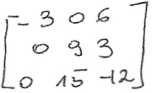 [-3 0 6
0 9 3
0 15 -12]